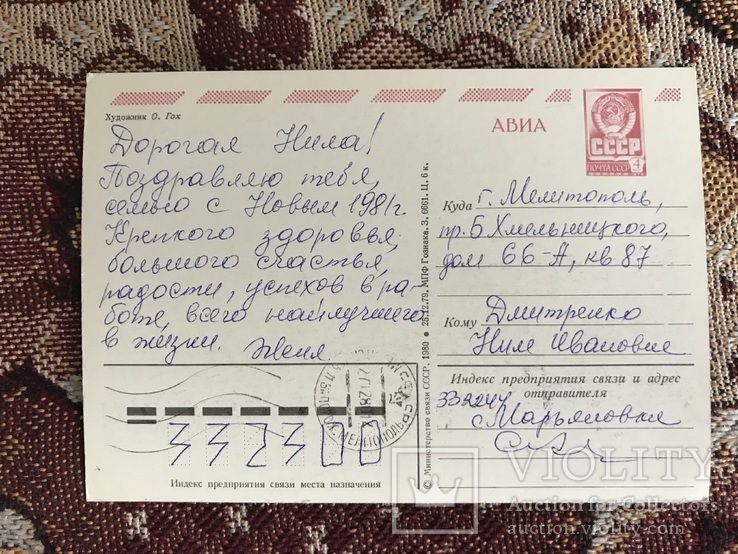 Художник О. Гох
АВИА
СССР
ПОЧТА СССР 4
Дорогая Нила!
Поздравляю тебя,
семью с Новым 1981г.
Крепкого здоровья,
большого счастья,
радости, успехов в ра-
боте, всего наилучшего
в жизни. Женя
Куда г. Мелитополь,
пр. Б. Хмельницкого,
дом 66-А, кв 87
Кому Дмитренко
Ниле Ивановне
Индекс предприятия связи и адрес
отправителя
332244
с Марьяновка
332300
Индекс предприятия связи места назначения
© Министерство связи СССР. 1980 • 25.12.79. МПФ Гознака. З. 6661. Ц. 6 к.
МЕЛИТОПОЛЬ
VIOLITY
Auction for Collectors
auction.violity.com